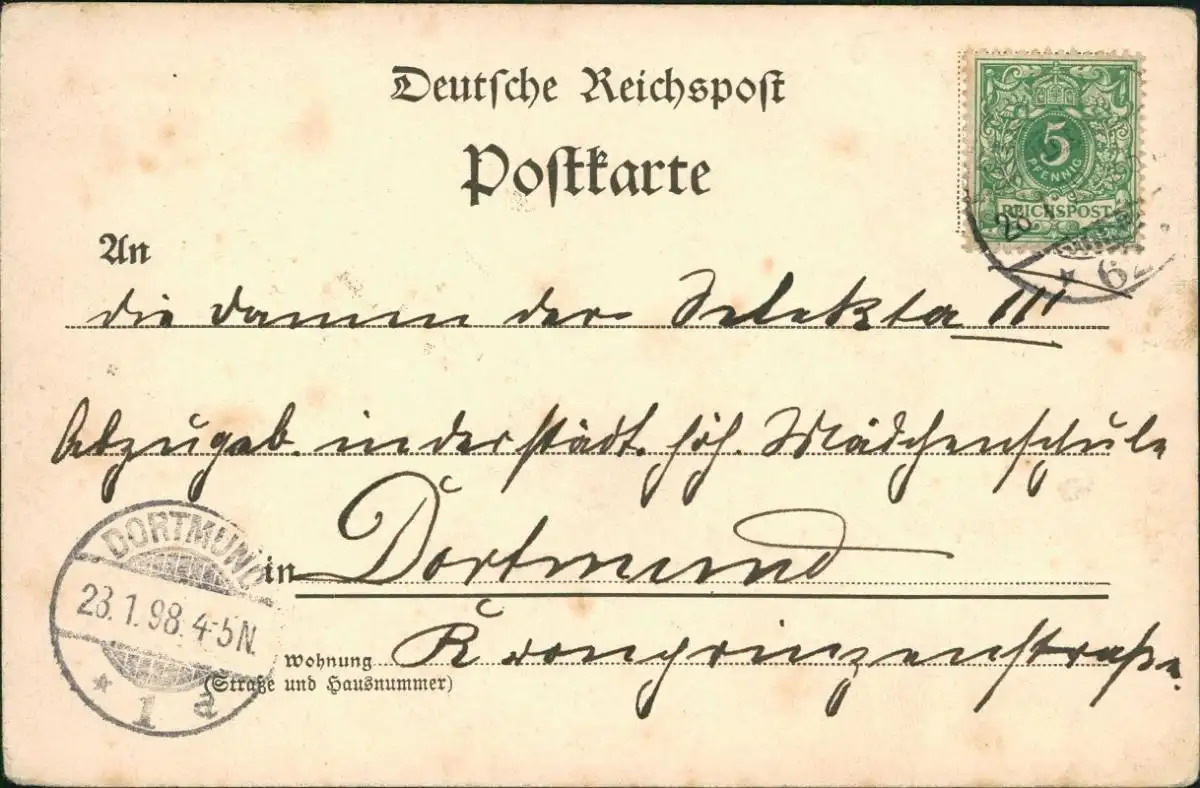 Deutsche Reichspost
Postkarte
5
PFENNIG
REICHSPOST
62
An
die Damen der Selekta III
Abzugeb. in der städt. höh. Mädchenschule
DORTMUND
23.1.98.4-5N.
* 1 a
in Dortmund
Wohnung Kronprinzenstraße.
(Straße und Hausnummer)